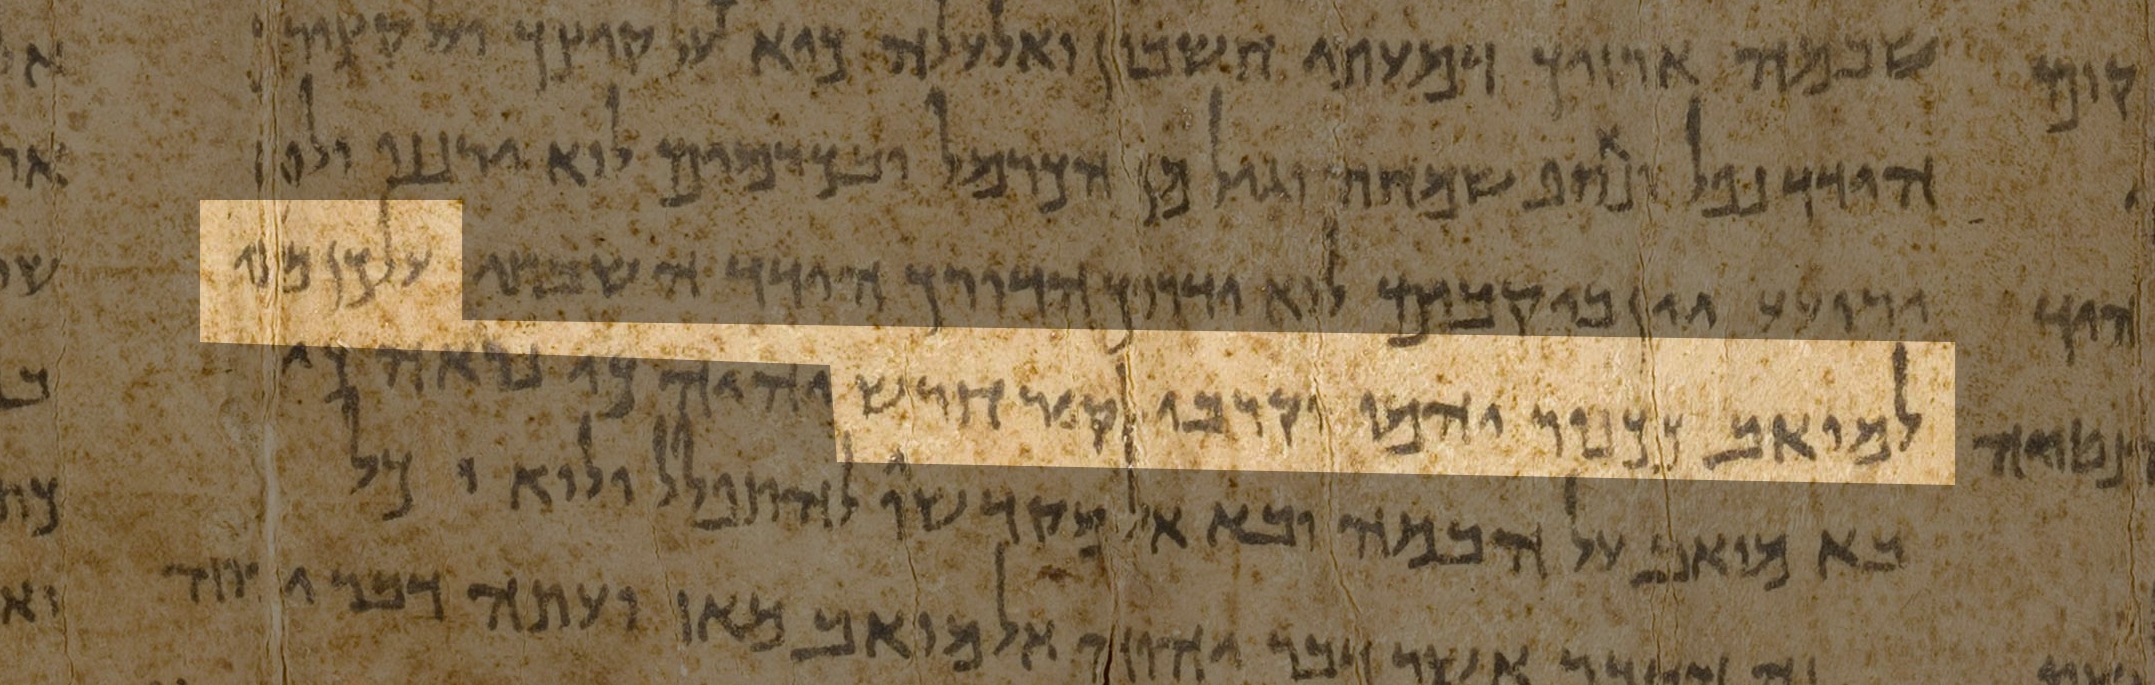 שבמה ארזיך דמעתי חשבון ואלעלה כיא על קיצך ועל קצירך
הידד נפל ונאסף שמחה וגיל מן הכרמל ובכרמים לוא ירננו ולוא
ירועע יין ביקבים לוא ידרוך הדורך הידד השבתי על כן מעי
למואב ככנור יהמו וקרבי לקיר חרש והיה כי נראה כי
בא מואב על הבמה ובא אל מקדשו להתפלל ולוא יוכל
זה הדבר אשר דבר יהוה אל מואב מאז ועתה דבר יהוה